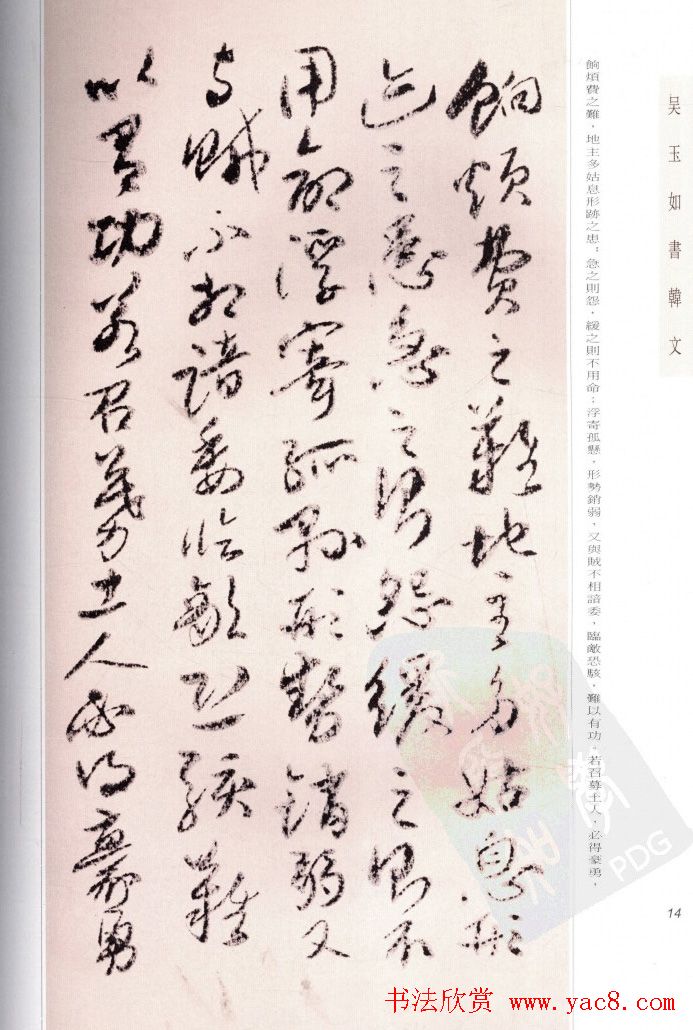 吴玉如書韓文
14
餉煩費之難，地主多姑息形跡之患：急之則怨，緩之則不用命；浮寄孤懸，形勢銷弱，又與賊不相諳委，臨敵恐駭，難以有功，若召募土人，必得豪勇，
餉煩費之難地主多姑息形
迹之患急之則怨緩之則不
用命浮寄孤懸形勢銷弱又
与賊不相諳委臨敵恐駭難
以有功若召募土人必得豪勇
PDG
书法欣赏 www.yac8.com